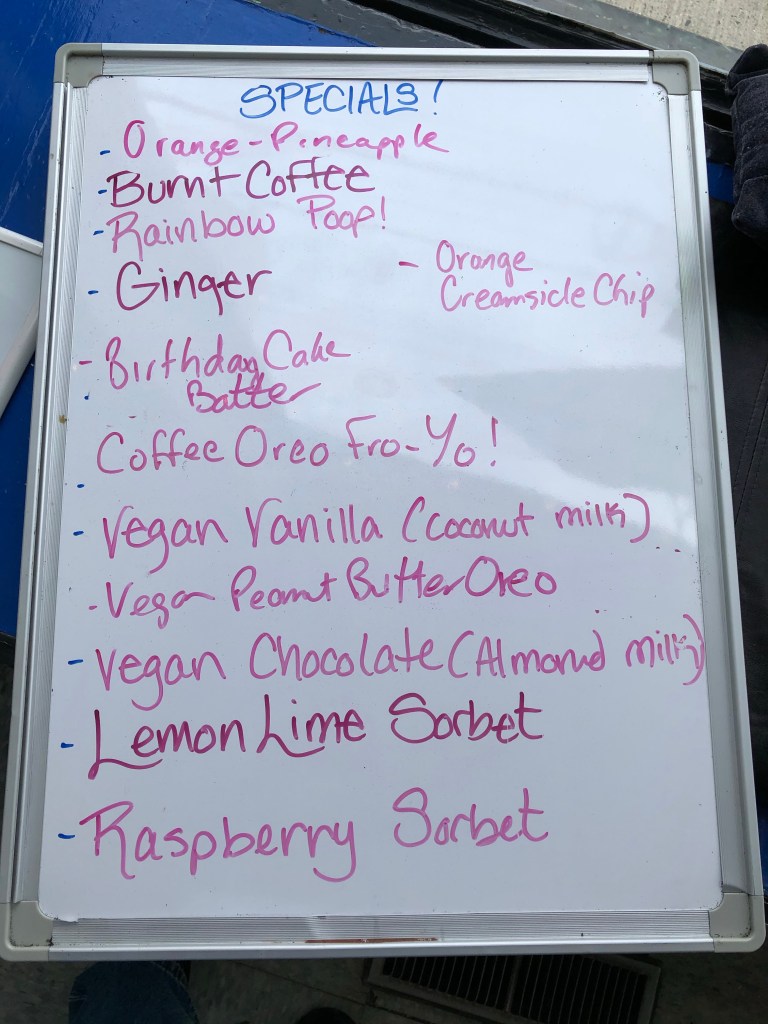 SPECIALS!
- Orange-Pineapple
- Burnt Coffee
- Rainbow Poop!
- Ginger
- Orange
Creamsicle Chip
- Birthday Cake
Batter
Coffee Oreo Fro-Yo!
- Vegan Vanilla (Coconut milk)
- Vegan Peanut Butter Oreo
- Vegan Chocolate (Almond milk)
- Lemon Lime Sorbet
- Raspberry Sorbet